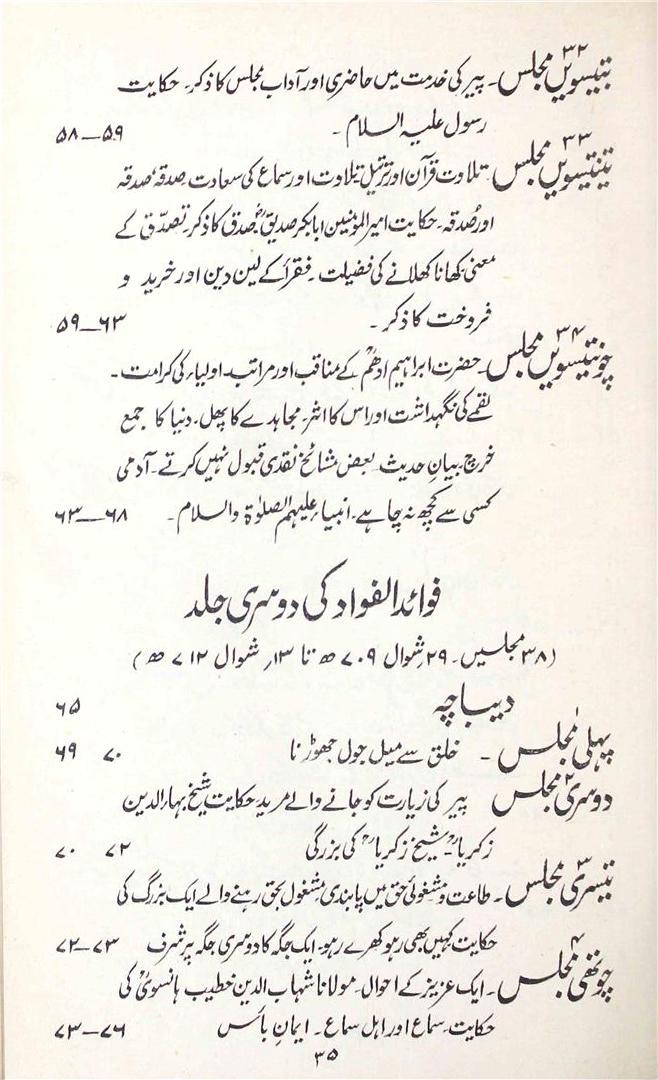 ۳۲
بتیسویں مجلس۔ پیر کی خدمت میں حاضری اور آداب مجلس کا ذکر۔ حکایت
رسول علیہ السلام۔ ۵۸—۵۹
۳۳
تینتیسویں مجلس تلاوت قرآن اور ترتیل تلاوت اور سماع کی سعادت۔ صدقہ، صدقہ
اور صُدقہ۔ حکایت امیر المومنین ابابکر صدیقؓ، صدق کا ذکر۔ تصدّق کے
معنی، کھانا کھلانے کی فضیلت۔ فقراء کے لین دین اور خرید و
فروخت کا ذکر۔ ۵۹—۶۳
۳۴
چونتیسویں مجلس۔ حضرت ابراہیم ادھمؒ کے مناقب اور مراتب۔ اولیاء کی کرامت۔
لقمے کی نگہداشت اور اس کا اثر۔ مجاہدے کا پھل۔ دنیا کا جمع
خرچ، بیانِ حدیث۔ بعض مشائخ نقدی قبول نہیں کرتے۔ آدمی
کسی سے کچھ نہ چاہے۔ انبیاء علیہم الصلوٰۃ والسلام۔ ۶۳—۶۸
فوائد الفواد کی دوسری جلد
(۳۸ مجلسیں۔ ۲۹ شوال ۷۰۹ھ تا ۱۳ر شوال ۷۱۲ھ)
دیباچہ ۶۵
پہلی ۱ مجلس ۔ خلق سے میل جول چھوڑنا ۶۹ ۷۰
دوسری ۲ مجلس پیر کی زیارت کو جانے والے مرید۔ حکایت شیخ بہاء الدین
زکریاؒ۔ شیخ زکریاؒ کی بزرگی ۷۰ ۷۲
تیسری ۳ مجلس۔ طاعت و مشغولیٔ حق میں پابندی، مشغول بحق رہنے والے ایک بزرگ کی
حکایت کہیں بھی رہو کھرے رہو۔ ایک جگہ کا دوسری جگہ پر شرف ۷۲—۷۳
چوتھی ۴ مجلس۔ ایک عزیز کے احوال۔ مولانا شہاب الدین خطیب ہانسویؒ کی
حکایت۔ سماع اور اہل سماع۔ ایمانِ باَس ۷۳—۷۶
۳۵